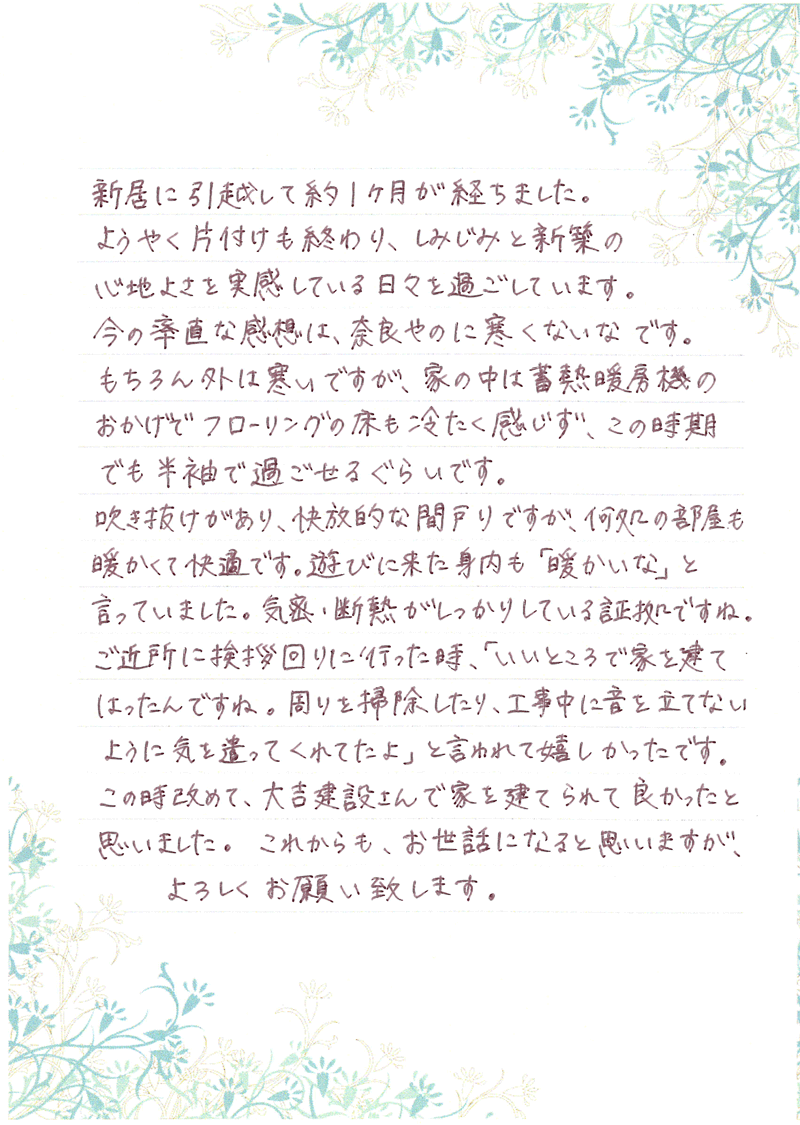 新居に引越して約1ヶ月が経ちました。
ようやく片付けも終わり、しみじみと新築の
心地よさを実感している日々を過ごしています。
今の率直な感想は、奈良やのに寒くないなです。
もちろん外は寒いですが、家の中は蓄熱暖房機の
おかげでフローリングの床も冷たく感じず、この時期
でも半袖で過ごせるぐらいです。
吹き抜けがあり、快放的な間戸りですが、何処の部屋も
暖かくて快適です。遊びに来た身内も「暖かいな」と
言っていました。気密・断熱がしっかりしている証拠ですね。
ご近所に挨拶回りに行った時、「いいところで家を建て
はったんですね。周りを掃除したり、工事中に音を立てない
ように気を遣ってくれてたよ」と言われて嬉しかったです。
この時改めて、大吉建設さんで家を建てられて良かったと
思いました。 これからも、お世話になると思いますが、
よろしくお願い致します。